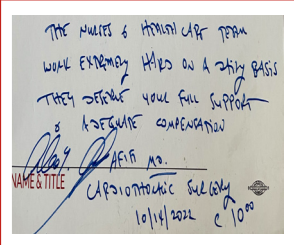 THE NURSES & HEALTH CARE TEAM
WORK EXTREMELY HARD ON A DAILY BASIS
THEY DESERVE YOUR FULL SUPPORT
& ADEQUATE COMPENSATION
AFIFI MD.
NAME & TITLE
CARDIOTHORACIC SURGERY
10/14/2022 @ 10:00